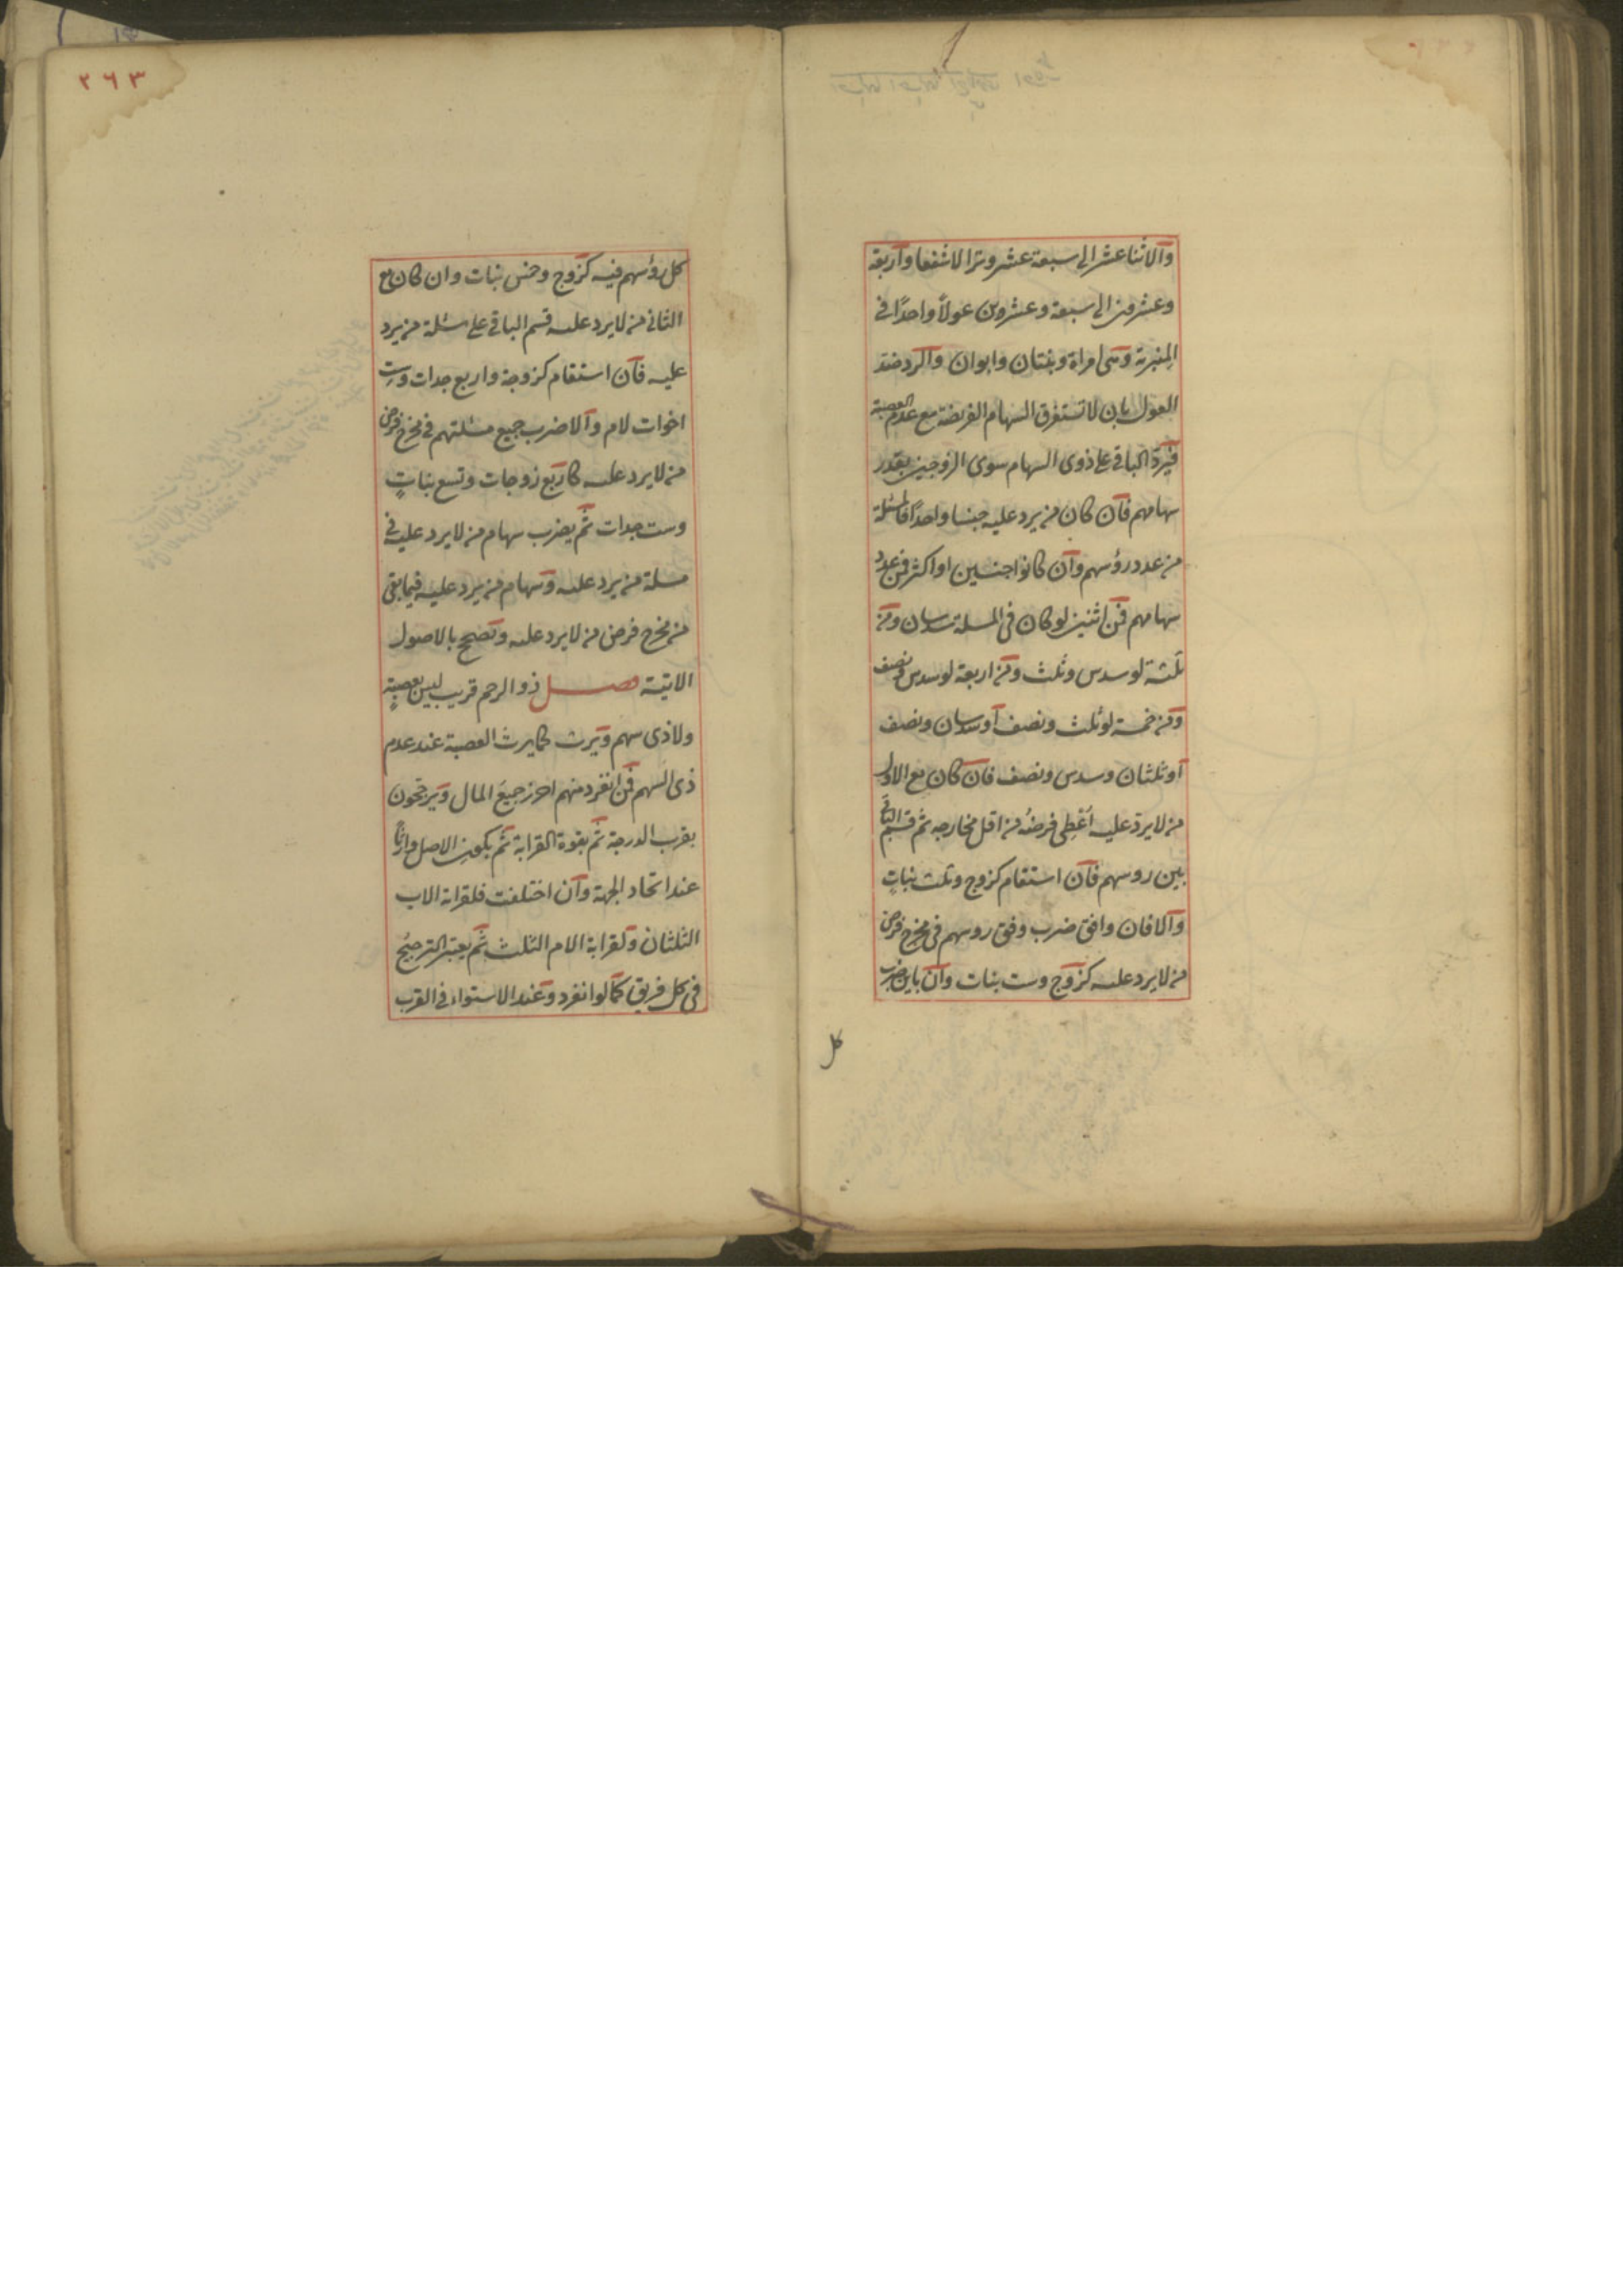 والاثنا عشر الى سبعة عشر وترا لا شفعا واربعة
وعشرون الى سبعة وعشرون عولا واحدًا في
المنبرية وهي امراة وبنتان وابوان والرد ضد
العول بان لا تستغرق السهام الفريضة مع عدم العصبة
فيردّ الباقي على ذوي السهام سوى الزوجين بقدر
سهامهم فان كان من يرد عليه جنسا واحدًا فالمسئلة
من عدد رؤسهم وان كانوا جنسين او اكثر فمن عدد
سهامهم فمن اثنين لو كان في المسلة سدسان ومن
ثلثة لو سدس وثلث ومن اربعة لو سدس ونصف
ومن خمسة لو ثلث ونصف او سدسان ونصف
او ثلثان وسدس ونصف فان كان مع الاول
من لا يردّ عليه اُعْطِى فرضهُ من اقل مخارجه ثم قسم الباقي
بين روسهم فان استقام كزوج وثلث بناتٍ
والا فان وافق ضرب وفق روسهم في مخرج فرض
من لا يرد عليه كزوج وست بنات وان باين ضرب
كل
٢٦٣
كل رؤسهم فيه كزوج وخمس بنات وان كان مع
الثاني من لا يرد عليه قسم الباقي على مسئلة من يرد
عليه فان استقام كزوجة واربع جدات وست
اخوات لام والا ضرب جميع مسئلتهم في مخرج فرض
من لا يرد عليه كاربع زوجات وتسع بناتٍ
وست جدات ثم يضرب سهام من لا يرد عليه في
مسلة من يرد عليه وسهام من يرد عليه فيما بقى
من مخرج فرض من لا يرد عليه وتصح بالاصول
الاتية فصل ذو الرحم قريب ليس بعصبةٍ
ولا ذي سهم ويرث كما يرث العصبة عند عدم
ذى السهم فمن انفرد منهم احرز جميعَ المال ويرجحون
بقرب الدرجة ثم بقوة القرابة ثم بكون الاصل وارثًا
عند اتحاد الجهة وان اختلفت فلقرابة الاب
الثلثان ولقرابة الام الثلث ثم يعتبر الترجيح
في كل فريق كما لو انفرد وعند الاستواء في القرب